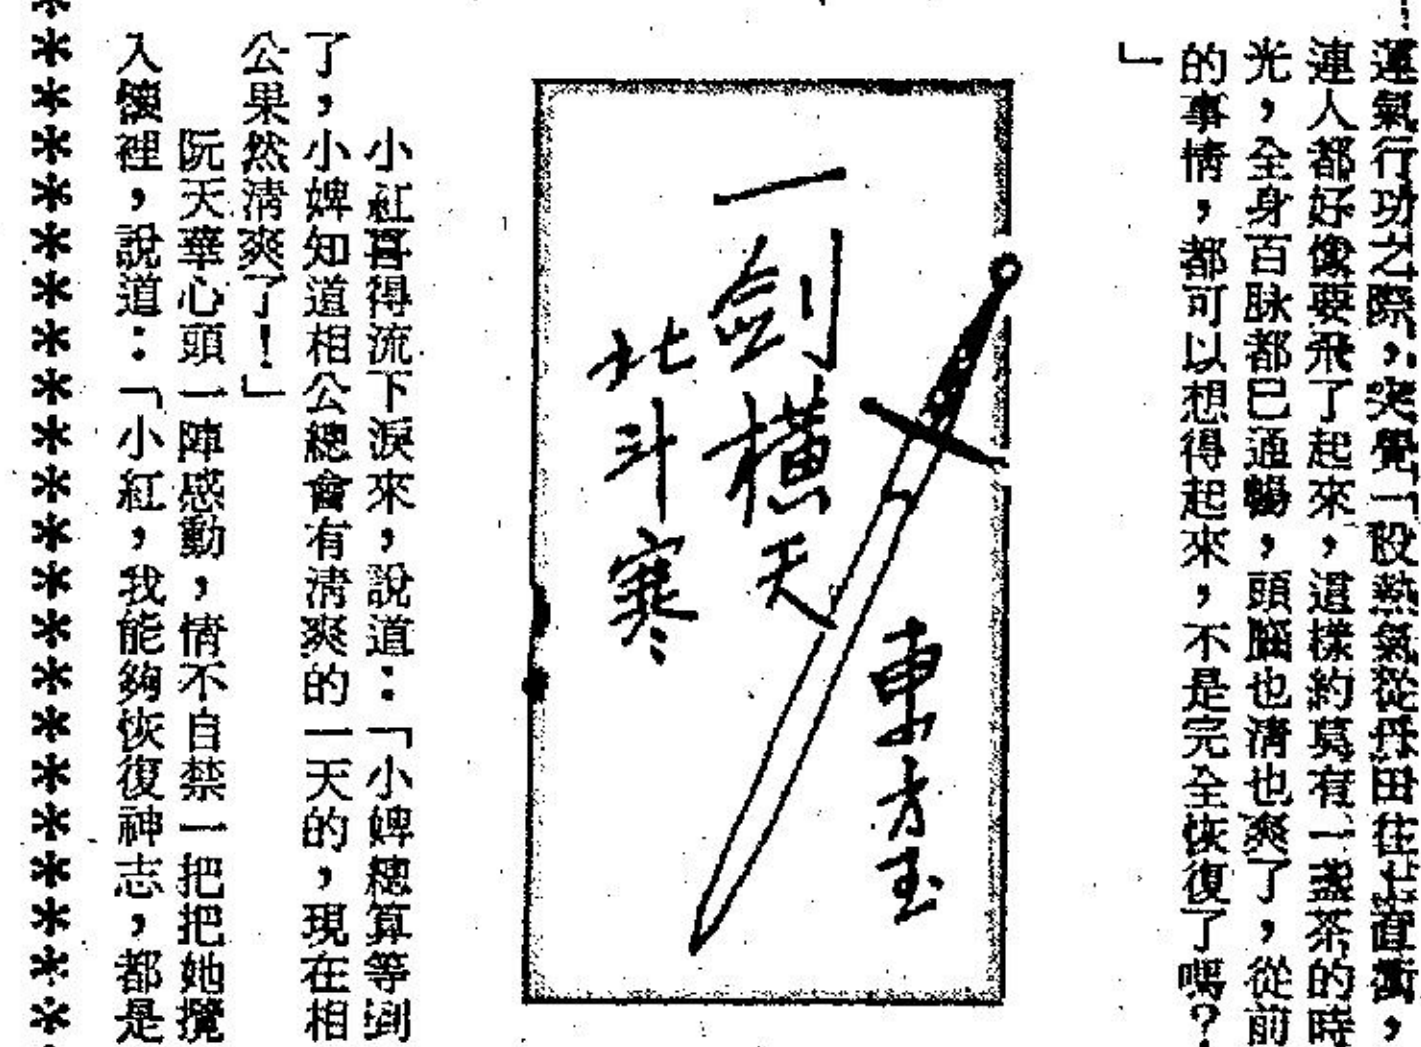 運氣行功之際，突覺一股熱氣從丹田往上直衝，
連人都好像要飛了起來，這樣約莫有一盞茶的時
光，全身百脉都已通暢，頭腦也清也爽了，從前
的事情，都可以想得起來，不是完全恢復了嗎？
」
一劍橫天
北斗寒
東方玉
小紅喜得流下淚來，說道：「小婢總算等到
了，小婢知道相公總會有清爽的一天的，現在相
公果然清爽了！」
阮天華心頭一陣感動，情不自禁一把把她攬
入懷裡，說道：「小紅，我能夠恢復神志，都是
＊＊＊＊＊＊＊＊＊＊＊＊＊＊＊＊＊＊＊＊＊